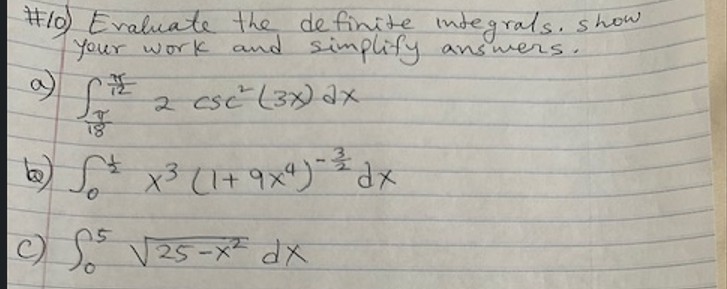 #10) Evaluate the definite integrals. show
your work and simplify answers.
a) ∫_{π/18}^{π/12} 2 csc²(3x) dx
b) ∫_0^{1/2} x³ (1+9x⁴)^{-3/2} dx
c) ∫_0^5 √(25-x²) dx